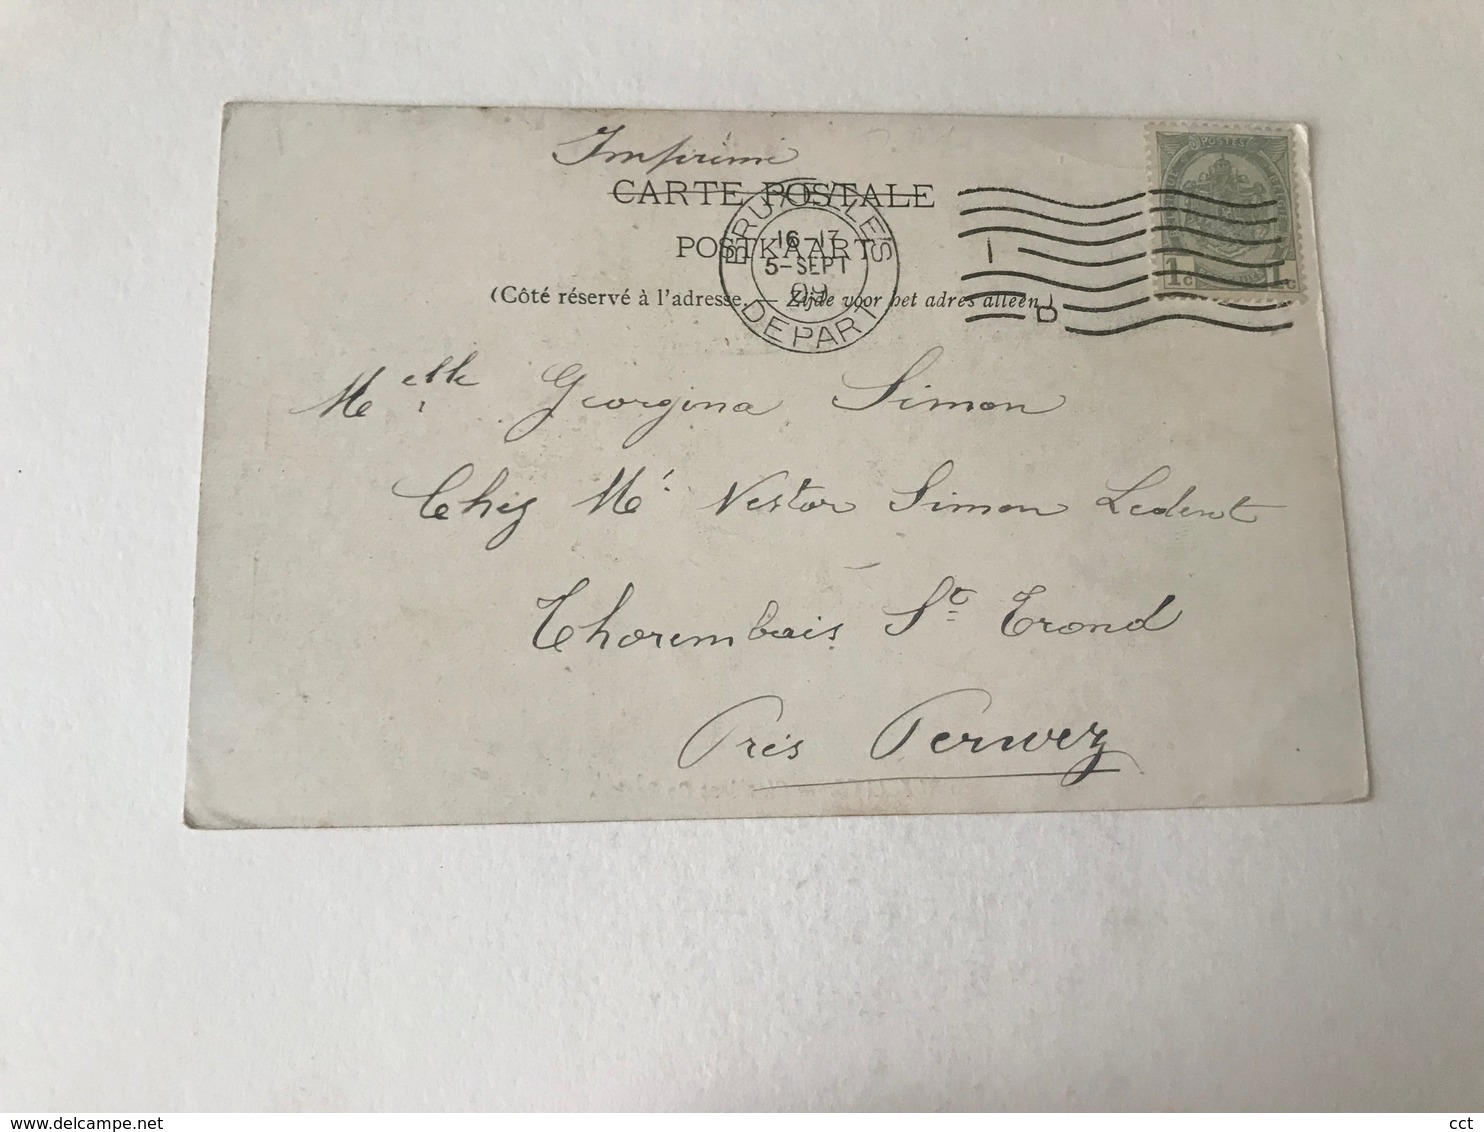 Imprimé
CARTE POSTALE
POSTKAART
(Côté réservé à l'adresse. — Zijde voor het adres alleen)
BRUXELLES
16-17
5-SEPT
DEPART
1 D
POSTES
1c 1c
Melle Georgina Simon
Chez Mr Nestor Simon Ledent
Thorembais St Trond
Près Perwez
cct